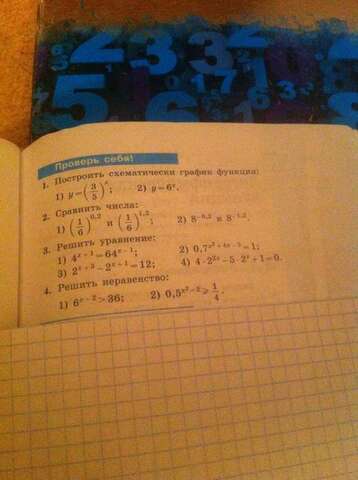 6 2 3 3 2
5
Проверь себя!
1. Построить схематически график функции:
1) y=(3/5)ˣ; 2) y=6ˣ.
2. Сравнить числа:
1) (1/6)^0,2 и (1/6)^1,2; 2) 8^−0,2 и 8^−1,2.
3. Решить уравнение:
1) 4^(x−1)=64^(x−1); 2) 0,7^(x²+4x−5)=1;
3) 2^(x+3)−2^(x+1)=12; 4) 4·2^(2x)−5·2^x+1=0.
4. Решить неравенство:
1) 6^(x−2)>36; 2) 0,5^(x²−2)≥1/4.